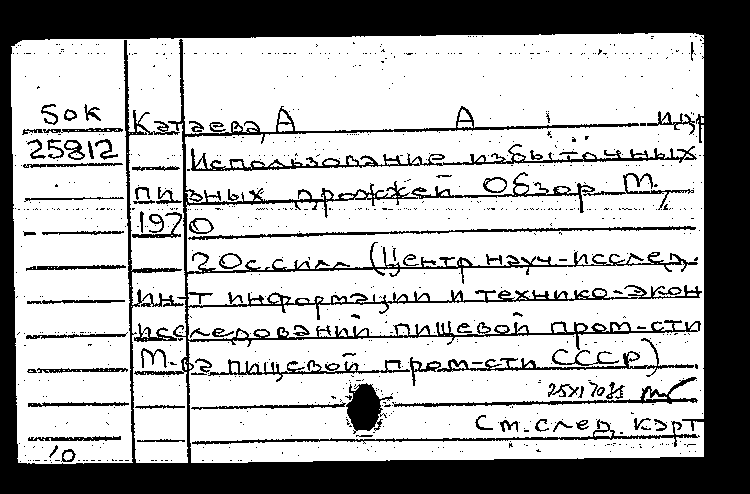 50К
25812
Катаева, А А и др
Использование избыточных
пивных дрожжей Обзор М.,
1970
20с. с илл (Центр науч-исслед.
ин-т информации и технико-экон
исследований пищевой пром-сти
М-ва пищевой пром-сти СССР)
См. след. карт
10